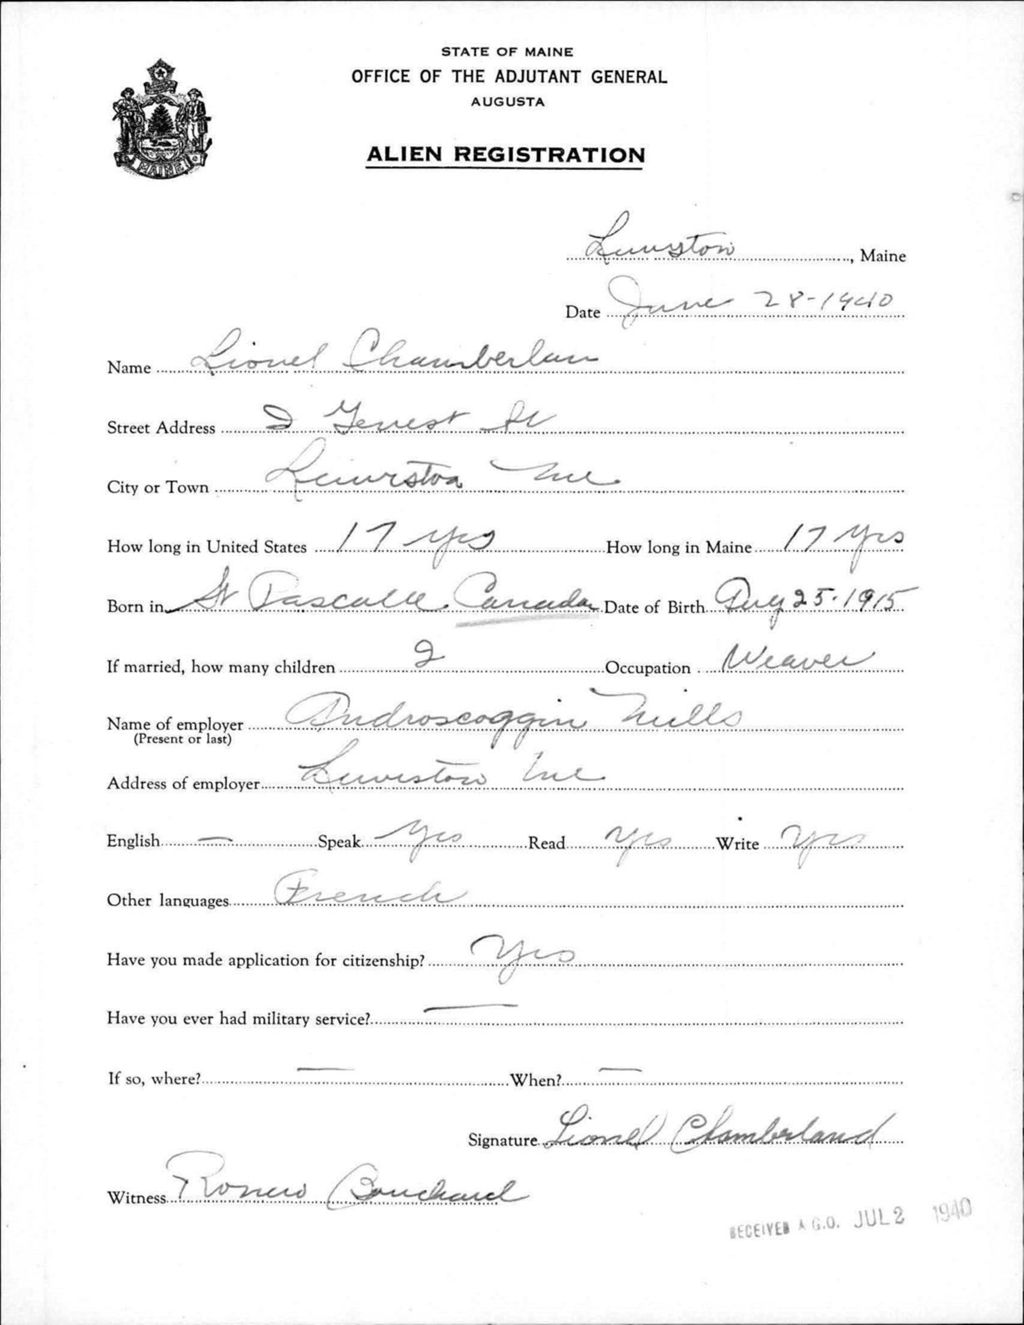 STATE OF MAINE
OFFICE OF THE ADJUTANT GENERAL
AUGUSTA
ALIEN REGISTRATION
MAINE
Lewiston, Maine
Date June 28-1940
Name Lionel Chamberlan
Street Address 2 Genest St
City or Town Lewiston Me
How long in United States 17 yrs How long in Maine 17 Yrs
Born in St Pascalle Canada Date of Birth Aug 25-1915
If married, how many children 2 Occupation Weaver
Name of employer Androscoggin Mills
(Present or last)
Address of employer Lewiston Me
English — Speak Yes Read Yes Write Yes
Other languages French
Have you made application for citizenship? Yes
Have you ever had military service? —
If so, where? — When? —
Signature Lionel Chamberland
Witness Romeo Bouchard
RECEIVED A.G.O. JUL 2 1940